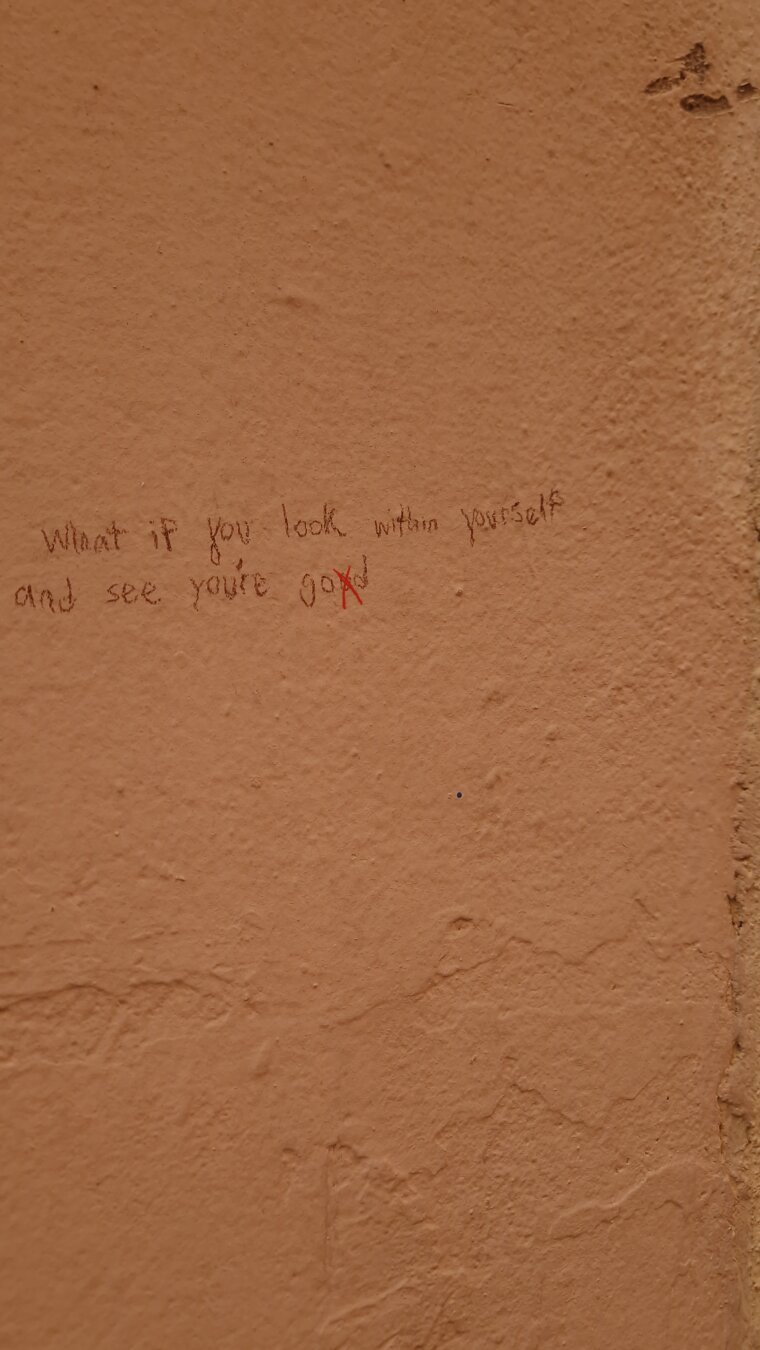 What if you look within yourself
and see you're good